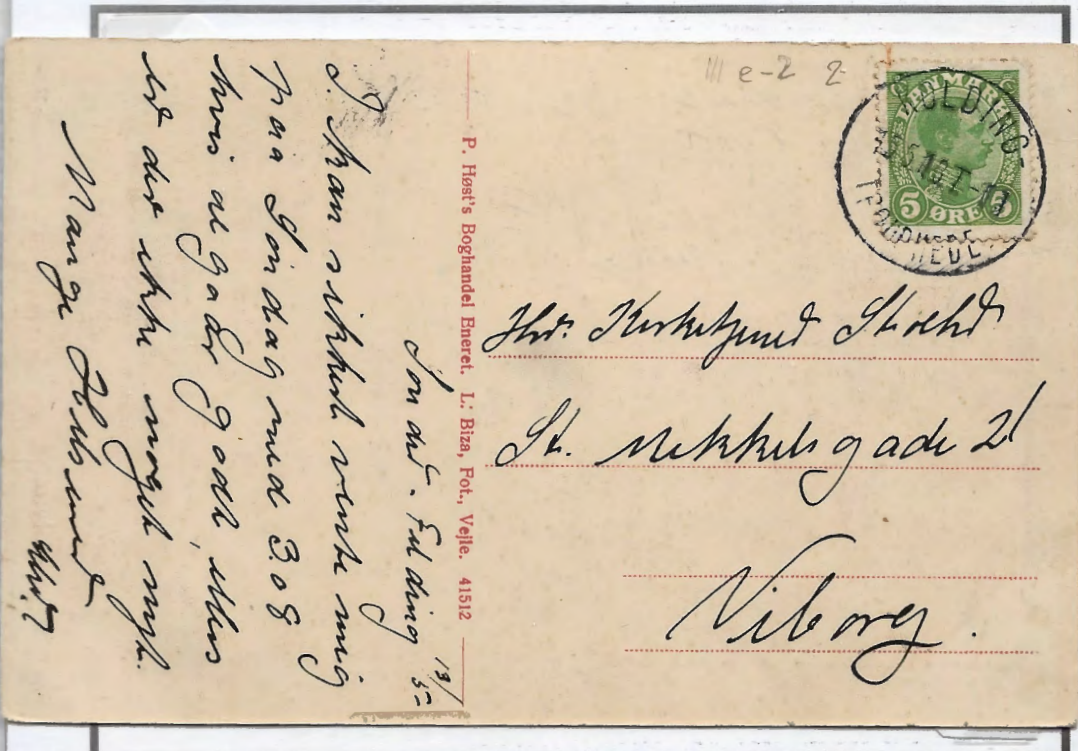 III e-2 2-
DANMARK
5 ØRE
KOLDING
TROLDHEDE
Hrr. Kirkebetjent
St. Mikkelsgade 21
Viborg.
P. Høst's Boghandel Eneret. L: Biza, Fot., Vejle. 41512
Sønder. Felding 13/5-
I. kan sikkert vente mig
paa Søndag med 3.08
hvis alt gaar godt, ellers
er der ikke noget nyt.
Mange Hilsner